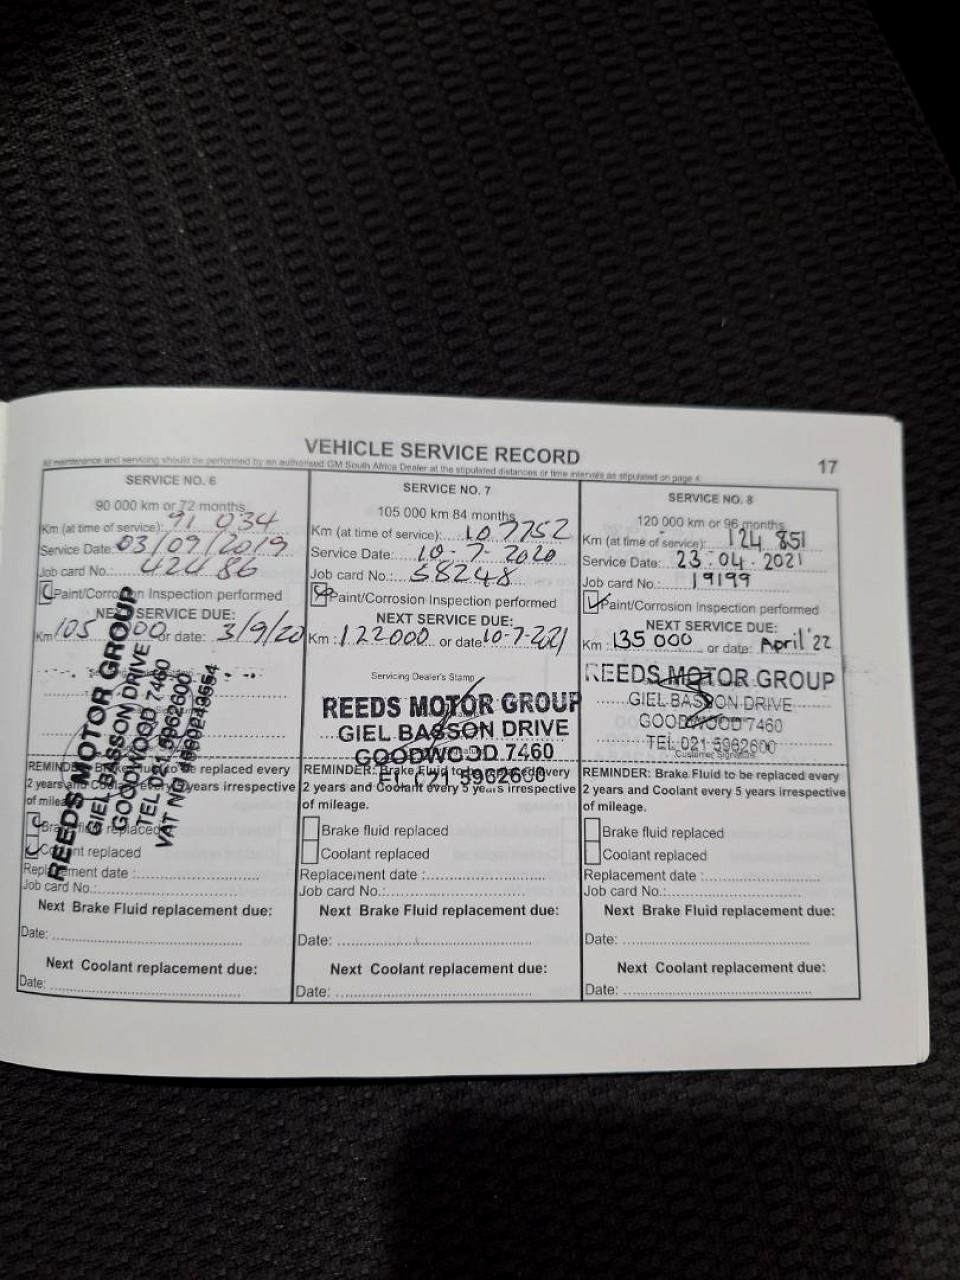 VEHICLE SERVICE RECORD
17
All maintenance and servicing should be performed by an authorised GM South Africa Dealer at the stipulated distances or time intervals as stipulated on page 4
SERVICE NO. 6
90 000 km or 72 months
Km (at time of service): 91 034
Service Date: 03/09/2019
Job card No.: 42486
Paint/Corrosion Inspection performed
NEXT SERVICE DUE:
Km 105 000 or date: 3/9/20
REEDS MOTOR GROUP
GIEL BASSON DRIVE
GOODWOOD 7460
TEL 021 5962600
VAT NO
REMINDER: Brake Fluid to be replaced every
2 years and Coolant every 5 years irrespective
of mileage.
Brake fluid replaced
Coolant replaced
Replacement date :
Job card No.:
Next Brake Fluid replacement due:
Date:
Next Coolant replacement due:
Date:
SERVICE NO. 7
105 000 km 84 months
Km (at time of service): 107752
Service Date: 10-7-2020
Job card No.: 58248
Paint/Corrosion Inspection performed
NEXT SERVICE DUE:
Km : 122000 or date 10-7-2021
Servicing Dealer's Stamp
REEDS MOTOR GROUP
GIEL BASSON DRIVE
GOODWOOD 7460
TEL 021 5962600
REMINDER: Brake Fluid to be replaced every
2 years and Coolant every 5 years irrespective
of mileage.
Brake fluid replaced
Coolant replaced
Replacement date :
Job card No.:
Next Brake Fluid replacement due:
Date:
Next Coolant replacement due:
Date:
SERVICE NO. 8
120 000 km or 96 months
Km (at time of service): 124 851
Service Date: 23.04.2021
Job card No.: 19199
Paint/Corrosion Inspection performed
NEXT SERVICE DUE:
Km : 135 000 or date: April '22
REEDS MOTOR GROUP
GIEL BASSON DRIVE
GOODWOOD 7460
TEL 021 5962600
Customer Signature
REMINDER: Brake Fluid to be replaced every
2 years and Coolant every 5 years irrespective
of mileage.
Brake fluid replaced
Coolant replaced
Replacement date :
Job card No.:
Next Brake Fluid replacement due:
Date:
Next Coolant replacement due:
Date: